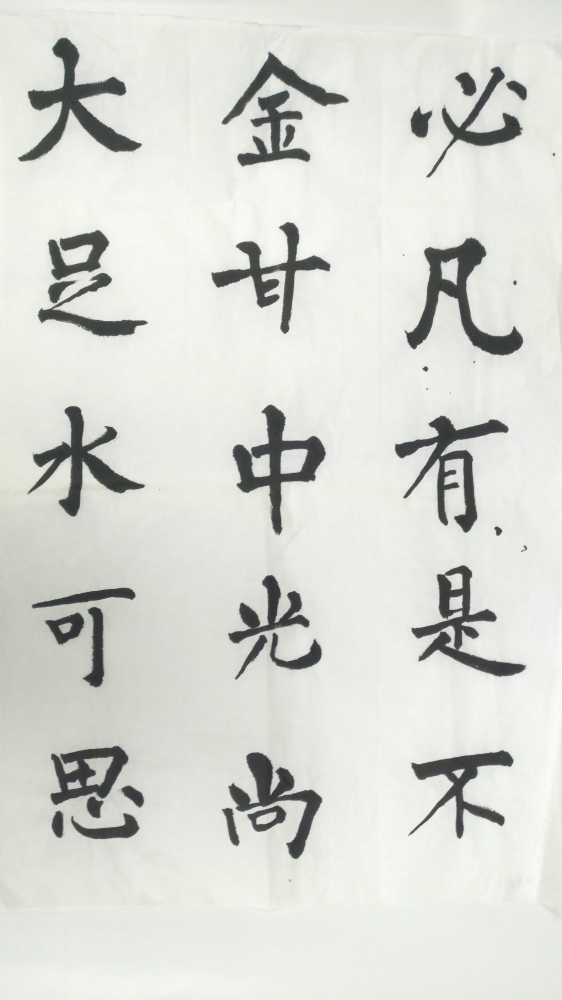 必凡有是不
金甘中光尚
大足水可思